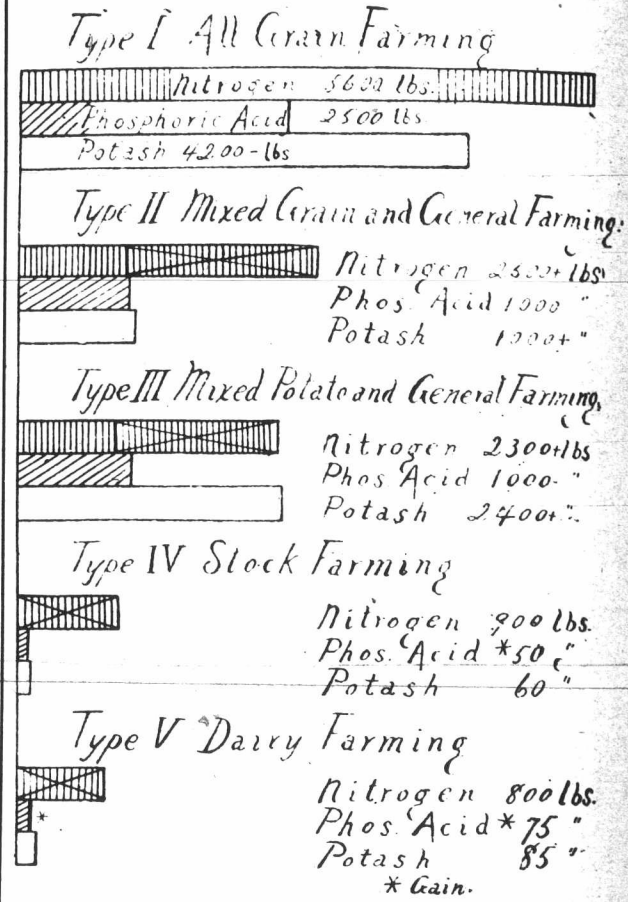 Type I All Grain Farming
Nitrogen 5600 lbs.
Phosphoric Acid 2500 lbs
Potash 4200-lbs
Type II Mixed Grain and General Farming:
Nitrogen lbs.
Phos. Acid 1000 "
Potash "
Type III Mixed Potato and General Farming,
Nitrogen 2300+lbs
Phos Acid 1000- "
Potash 2400+ ".
Type IV Stock Farming
Nitrogen 900 lbs.
Phos. Acid *50 "
Potash 60 "
Type V Dairy Farming
Nitrogen 800 lbs.
*
Phos. Acid * 75 "
Potash 85 "
* Gain.